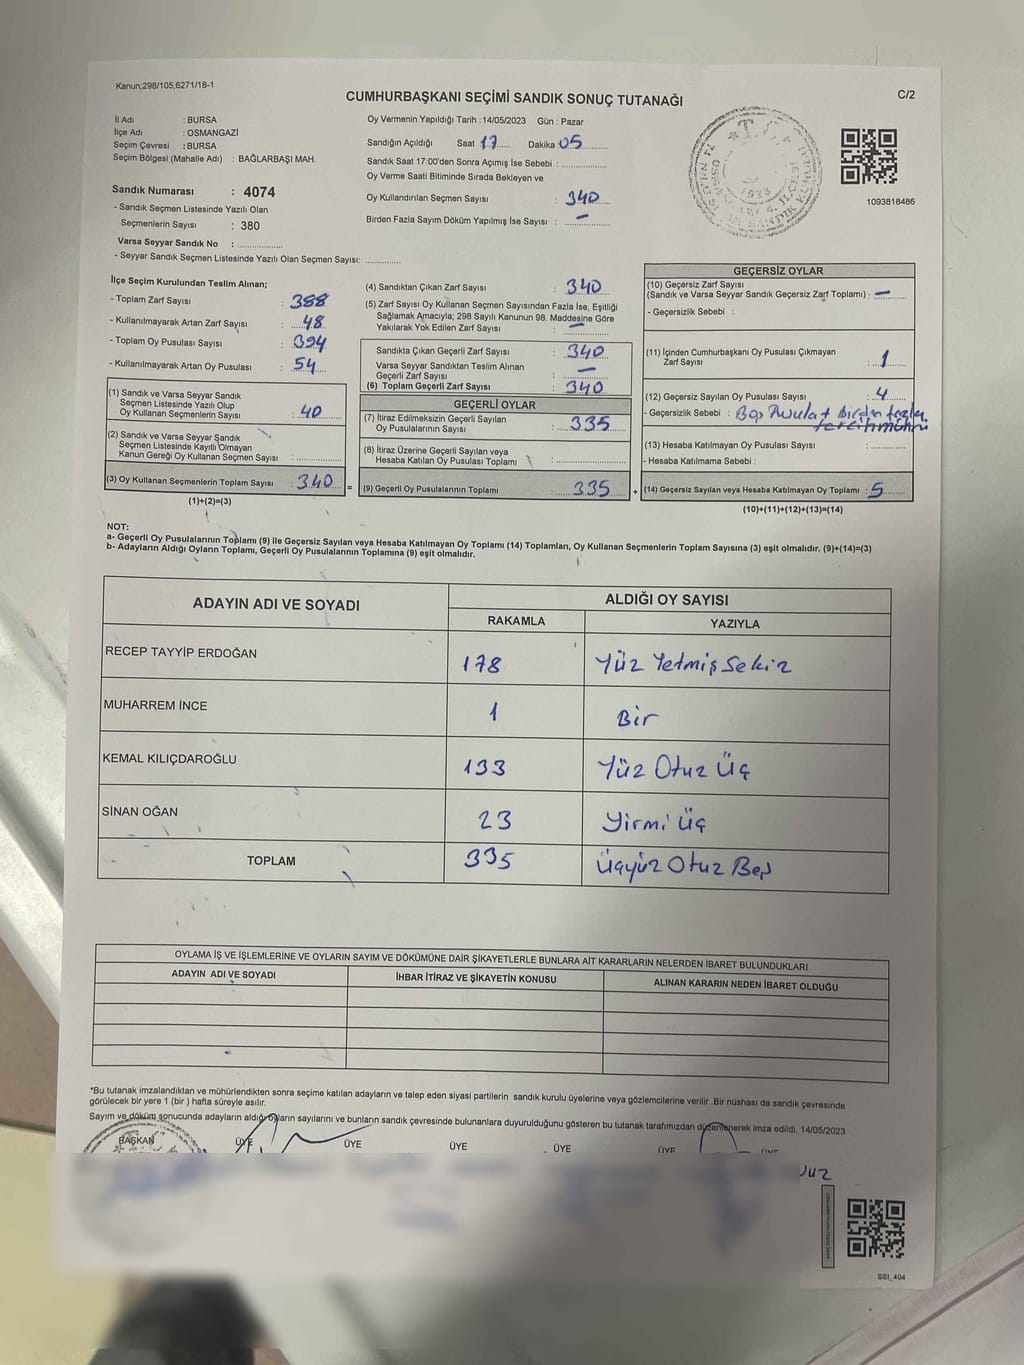 Kanun;298/105;6271/18-1
C/2
CUMHURBAŞKANI SEÇİMİ SANDIK SONUÇ TUTANAĞI
İl Adı : BURSA
İlçe Adı : OSMANGAZİ
Seçim Çevresi : BURSA
Seçim Bölgesi (Mahalle Adı) : BAĞLARBAŞI MAH.
Sandık Numarası : 4074
- Sandık Seçmen Listesinde Yazılı Olan
Seçmenlerin Sayısı : 380
Varsa Seyyar Sandık No : ..............
- Seyyar Sandık Seçmen Listesinde Yazılı Olan Seçmen Sayısı: ............
Oy Vermenin Yapıldığı Tarih : 14/05/2023 Gün : Pazar
Sandığın Açıldığı Saat 17 Dakika 05
Sandık Saat 17:00'den Sonra Açımış İse Sebebi : ..............
Oy Verme Saati Bitiminde Sırada Bekleyen ve
Oy Kullandırılan Seçmen Sayısı : 340
Birden Fazla Sayım Döküm Yapılmış İse Sayısı : –
1093818486
İlçe Seçim Kurulundan Teslim Alınan;
- Toplam Zarf Sayısı : 388
- Kullanılmayarak Artan Zarf Sayısı : 48
- Toplam Oy Pusulası Sayısı : 394
- Kullanılmayarak Artan Oy Pusulası : 54
(1) Sandık ve Varsa Seyyar Sandık
Seçmen Listesinde Yazılı Olup
Oy Kullanan Seçmenlerin Sayısı : 40
(2) Sandık ve Varsa Seyyar Sandık
Seçmen Listesinde Kayıtlı Olmayan
Kanun Gereği Oy Kullanan Seçmen Sayısı : ..............
(3) Oy Kullanan Seçmenlerin Toplam Sayısı : 340 =
(1)+(2)=(3)
(4) Sandıktan Çıkan Zarf Sayısı : 340
(5) Zarf Sayısı Oy Kullanan Seçmen Sayısından Fazla İse, Eşitliği
Sağlamak Amacıyla; 298 Sayılı Kanunun 98. Maddesine Göre
Yakılarak Yok Edilen Zarf Sayısı : –
Sandıkta Çıkan Geçerli Zarf Sayısı : 340
Varsa Seyyar Sandıktan Teslim Alınan
Geçerli Zarf Sayısı : –
(6) Toplam Geçerli Zarf Sayısı : 340
GEÇERLİ OYLAR
(7) İtiraz Edilmeksizin Geçerli Sayılan
Oy Pusulalarının Sayısı : 335
(8) İtiraz Üzerine Geçerli Sayılan veya
Hesaba Katılan Oy Pusulası Toplamı : ..............
(9) Geçerli Oy Pusulalarının Toplamı : 335 +
GEÇERSİZ OYLAR
(10) Geçersiz Zarf Sayısı
(Sandık ve Varsa Seyyar Sandık Geçersiz Zarf Toplamı) : –
- Geçersizlik Sebebi :
(11) İçinden Cumhurbaşkanı Oy Pusulası Çıkmayan
Zarf Sayısı : 1
(12) Geçersiz Sayılan Oy Pusulası Sayısı : 4
- Geçersizlik Sebebi : Boş Pusula + birden fazla
tercih mührü
(13) Hesaba Katılmayan Oy Pusulası Sayısı : ..............
- Hesaba Katılmama Sebebi :
(14) Geçersiz Sayılan veya Hesaba Katılmayan Oy Toplamı : 5
(10)+(11)+(12)+(13)=(14)
NOT:
a- Geçerli Oy Pusulalarının Toplamı (9) ile Geçersiz Sayılan veya Hesaba Katılmayan Oy Toplamı (14) Toplamları, Oy Kullanan Seçmenlerin Toplam Sayısına (3) eşit olmalıdır. (9)+(14)=(3)
b- Adayların Aldığı Oyların Toplamı, Geçerli Oy Pusulalarının Toplamına (9) eşit olmalıdır.
ADAYIN ADI VE SOYADI ALDIĞI OY SAYISI
RAKAMLA YAZIYLA
RECEP TAYYİP ERDOĞAN 178 Yüz Yetmiş Sekiz
MUHARREM İNCE 1 Bir
KEMAL KILIÇDAROĞLU 133 Yüz Otuz Üç
SİNAN OĞAN 23 Yirmi Üç
TOPLAM 335 Üçyüz Otuz Beş
OYLAMA İŞ VE İŞLEMLERİNE VE OYLARIN SAYIM VE DÖKÜMÜNE DAİR ŞİKAYETLERLE BUNLARA AİT KARARLARIN NELERDEN İBARET BULUNDUKLARI
ADAYIN ADI VE SOYADI İHBAR İTİRAZ VE ŞİKAYETİN KONUSU ALINAN KARARIN NEDEN İBARET OLDUĞU
*Bu tutanak imzalandıktan ve mühürlendikten sonra seçime katılan adayların ve talep eden siyasi partilerin sandık kurulu üyelerine veya gözlemcilerine verilir .Bir nüshası da sandık çevresinde
görülecek bir yere 1 (bir ) hafta süreyle asılır.
Sayım ve döküm sonucunda adayların aldığı oyların sayılarını ve bunların sandık çevresinde bulunanlara duyurulduğunu gösteren bu tutanak tarafımızdan düzenlenerek imza edildi. 14/05/2023
BAŞKAN ÜYE ÜYE ÜYE ÜYE ÜYE ÜYE
SSI_404